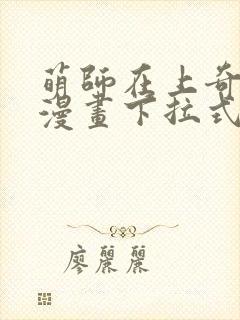 萌師在上奇
漫畫下拉式
廖麗麗